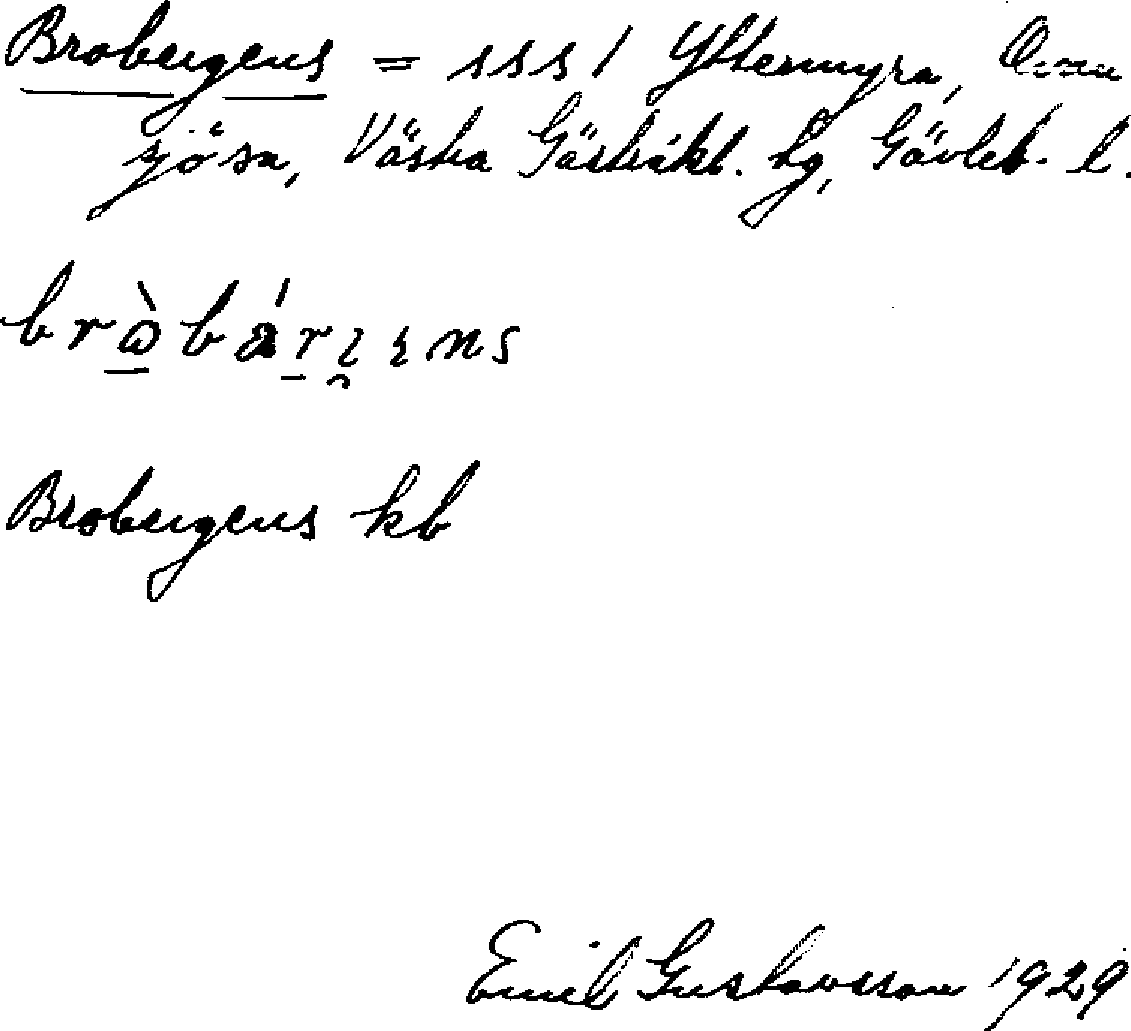 Brobergens = sss 1 Yttermyra, Ovan
sjösa, Västra Gästrikl. hg, Gävleb. l.
Brobergens kb
Emil Gustavsson 1929